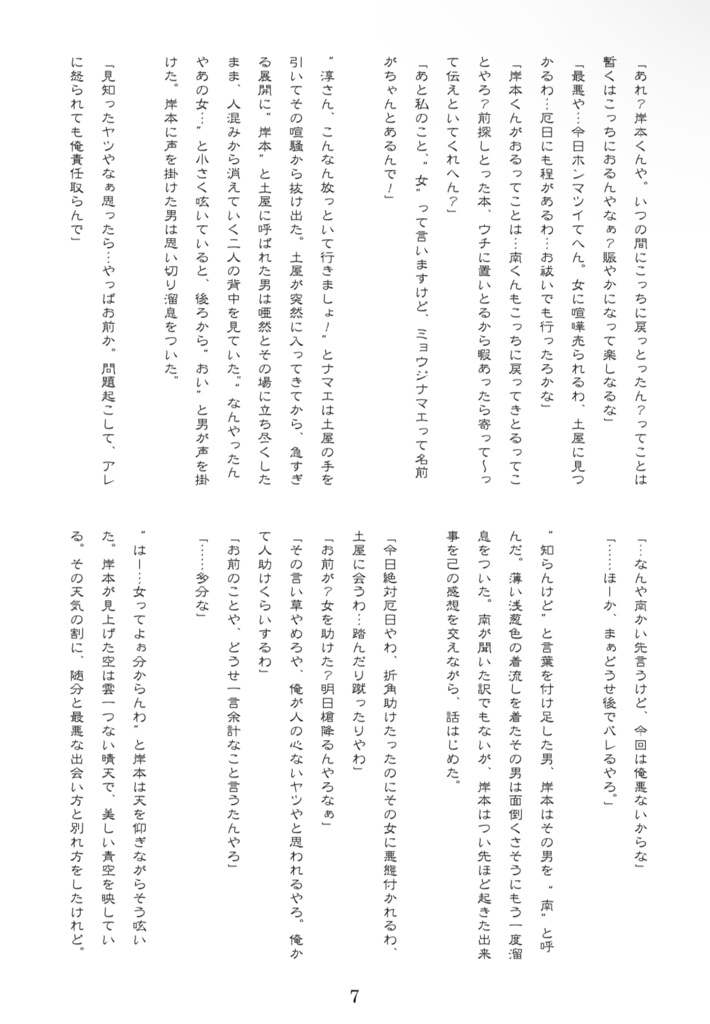 「あれ？岸本くんや。いつの間にこっちに戻っとったん？ってことは
暫くはこっちにおるんやなぁ？賑やかになって楽しなるな」
「最悪や…今日ホンマツイてへん。女に喧嘩売られるわ、土屋に見つ
かるわ…厄日にも程があるわ…お祓いでも行ったろかな」
「岸本くんがおるってことは…南くんもこっちに戻ってきとるってこ
とやろ？前探しとった本、ウチに置いとるから暇あったら寄って〜っ
て伝えといてくれへん？」
「あと私のこと、〝女〟って言いますけど、ミョウジナマエって名前
がちゃんとあるんで！」
〝淳さん、こんなん放っといて行きましょ！〟とナマエは土屋の手を
引いてその喧騒から抜け出た。土屋が突然に入ってきてから、急すぎ
る展開に〝岸本〟と土屋に呼ばれた男は唖然とその場に立ち尽くした
まま、人混みから消えていく二人の背中を見ていた。〝なんやったん
やあの女…〟と小さく呟いていると、後ろから〝おい〟と男が声を掛
けた。岸本に声を掛けた男は思い切り溜息をついた。
「見知ったヤツやなぁ思ったら…やっぱお前か。問題起こして、アレ
に怒られても俺責任取らんで」
「…なんや南かい先言うけど、今回は俺悪ないからな」
「……ほーか、まぁどうせ後でバレるやろ。」
〝知らんけど〟と言葉を付け足した男、岸本はその男を〝南〟と呼
んだ。薄い浅葱色の着流しを着たその男は面倒くさそうにもう一度溜
息をついた。南が聞いた訳でもないが、岸本はつい先ほど起きた出来
事を己の感想を交えながら、話はじめた。
「今日絶対厄日やわ、折角助けたったのにその女に悪態付かれるわ、
土屋に会うわ…踏んだり蹴ったりやわ」
「お前が？女を助けた？明日槍降るんやろなぁ」
「その言い草やめろや、俺が人の心ないヤツやと思われるやろ。俺か
て人助けくらいするわ」
「お前のことや、どうせ一言余計なこと言うたんやろ」
「……多分な」
〝はー…女ってよぉ分からんわ〟と岸本は天を仰ぎながらそう呟い
た。岸本が見上げた空は雲一つない晴天で、美しい青空を映してい
る。その天気の割に、随分と最悪な出会い方と別れ方をしたけれど。
7